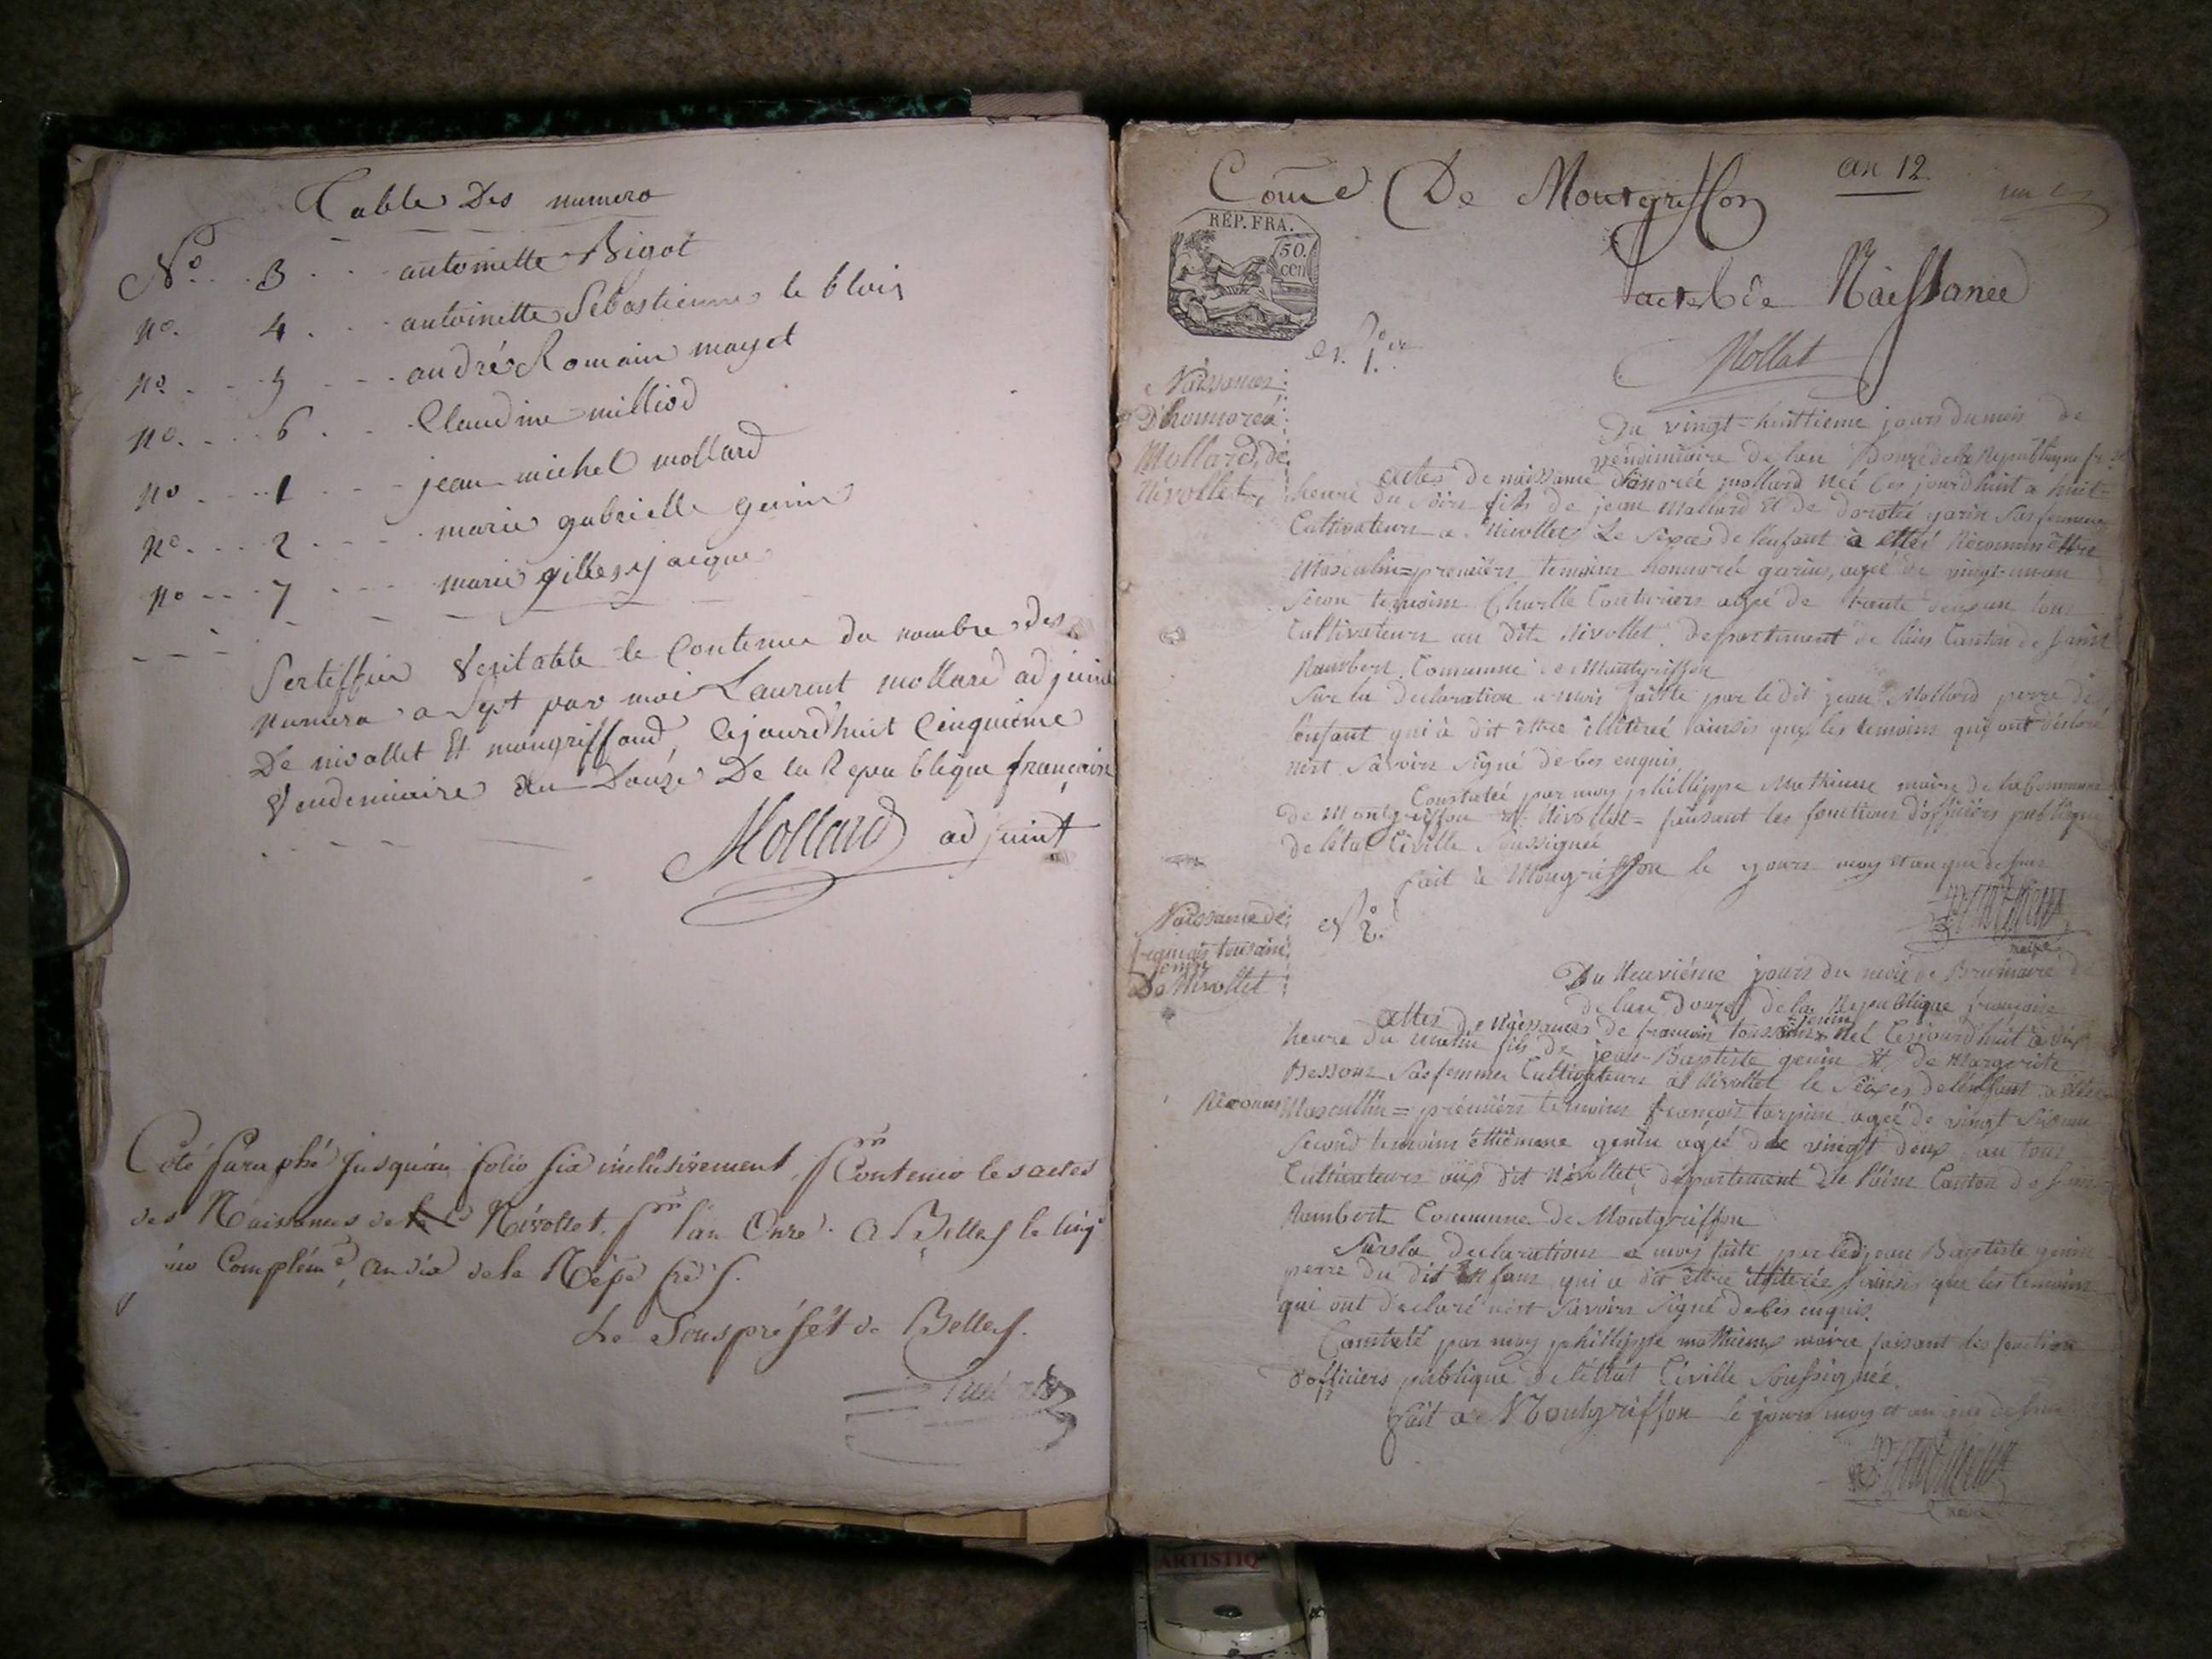 Table Des numero
No. . 3 . . antoinette Bigot
no. 4 . . antoinette Sébastienne le blois
no. - - 5 - - . andrés Romain mayet
no. - - 6 . . Claudine milliod
no - - . 1 - - - jean michel mollard
no. . . 2 . - - - marie gabrielle genin
no - - . 7 - - - marie gilles jacque
Sertiffier Veritable le Contenue du nombre des
numero a Sept par moi Laurent mollard adjuint
De nivollet Et mongriffond, Cejourd'huit Cinquieme
Vendemiaire an Douze De la Republique française
Mollard adjuint
Coté Paraphé jusqu'au folio six inclusivement, pr Contenir les actes
des Naissances de Nivollet, pr l'an Onze. A Belley le
Complém.e, an dix de la Rép.e fr.se
Le Souspréfét de Belley.
Com.e De Montgriffon an 12.
RÉP. FRA.
50.
cen
acte de Naissance
Mollat
N. 1.er
Naissances
D'honnorée
Mollard, de
Nivollet
Du vingt=huittieme jours du mois de
vendimiaire de lan Douze de la Republique fr.se
actes de naissance d'honorée mollard née Ces jourdhuit a huit
heure du Soire fils de jean Mollard Et de dorotée garin Sas femme
Cultivateurs a Nivollet Le Sexes de l'enfant à ettés Reconnue
Masculin=premiérs temoins honnoré garin, agee de vingt-un an
Secon temoins Charlle Couturiers agée de trente deux an tous
Cultivateurs au dite Nivollet. Departiment de lains Canton de Saint
Rambert. Comunne de Montgriffon
Sur la declaration a moir faitte par le dit jean Mollard perre de
l'enfant qui à dit être illitérée ainsis que les temoins qui ont déclaré
nêst Savoirs Signé de ces enquis
Constatée par moy phillippe Mathieux maire de la Commune
de Montgriffon et Nivollet= faisant les fonctions d'officiers publique
de létat Civille Soussignée
fait à Mongriffon le jours moy et an que dessus
maire
N.o 2.
Naissance de
françois tousaint
genin
De Nivollet
Du Neuviéme jours du mois de Brumaire
de lan Douze de la Republique française
genin
Attes de Naissances de françois toussaint Nét Cesjourd'huit à dix
heure du matin fils de jean-Baptiste genin Et de Margerite
Bessous Sas femmes Cultivateurs a Nivollet le Séxes delénfant a étés
Reconus Mascullin=prémiérs temoins françois tarpin agée de vingt Six an
Second temoins éttiénne genin agée de vingt deux an tous
Cultivateurs aux dit Nivollet, département de l'ains Canton de Saint
Rambert Commune de Montgriffon
Sursla declarations a moy faite par ledjean Baptiste genin
perre du dit Enfans qui a dit être illiterée ainsis que les temoins
qui ont declaré nêst Savoirs Signé de ces enquis.
Constaté par moy phillippe mathieux maire faisant les fonction
d'officiers publique de l'éttat Civille Soussignée.
fait a Montgriffon le jours moy et an que dessus
maire
ARTISTIQ